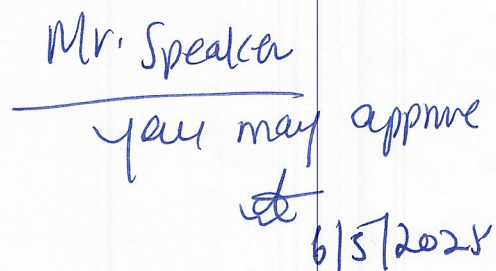 Mr. Speaker
you may approve
6/5/2025